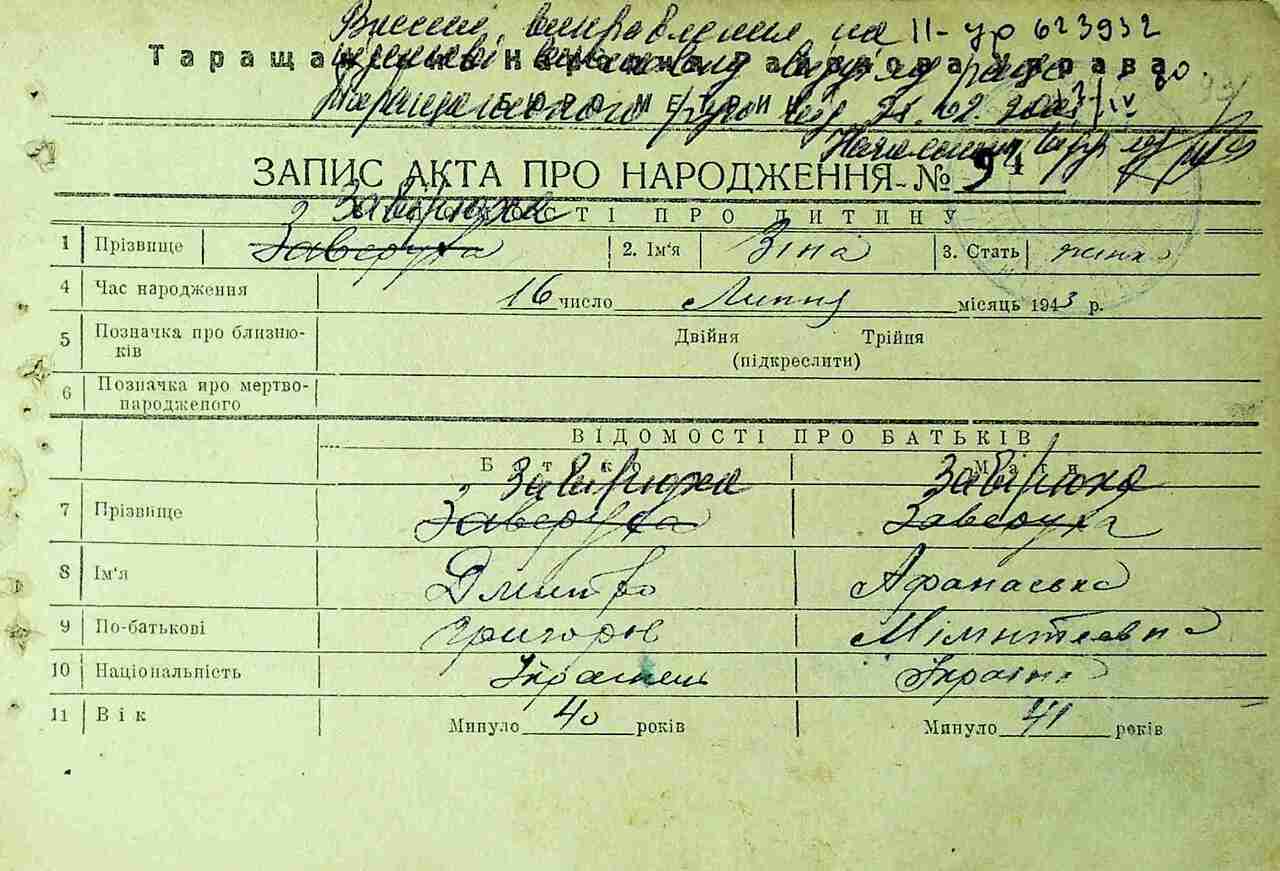 Внесені виправлення на II-ур 623932
Таращанська Районова Управа
БЮРО МЕТРИК
Таращанського від 02.
ЗАПИС АКТА ПРО НАРОДЖЕННЯ-№ 94
Завірюха
ВІДОМОСТІ ПРО ДИТИНУ
1 Прізвище Заверуха 2. Ім'я Зіна 3. Стать жіноча
4 Час народження 16 число Липня місяць 1943 р.
5 Позначка про близнюків Двійня Трійня
(підкреслити)
6 Позначка про мертвонародженого
ВІДОМОСТІ ПРО БАТЬКІВ
Батько Мати
Завірюха Завірюха
7 Прізвище Заверуха Заверуха
8 Ім'я Дмитро Афанаська
9 По-батькові Григоров
10 Національність Українець
11 Вік Минуло 40 років Минуло 41 років